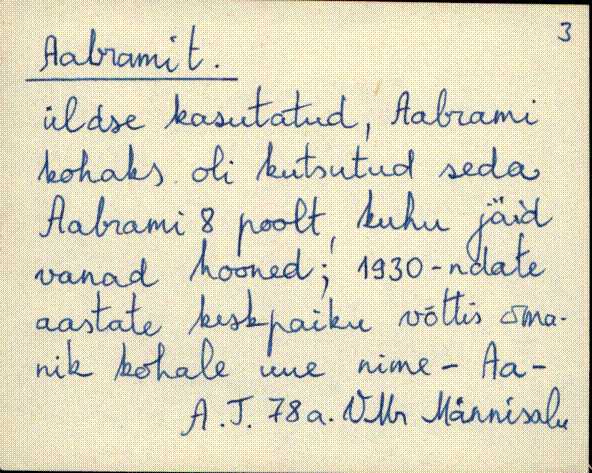 3
Aabramit.
üldse kasutatud, Aabrami
kohaks oli kutsutud seda
Aabrami 8 poolt, kuhu jäid
vanad hooned; 1930-ndate
aastate keskpaiku võttis oma-
nik kohale uue nime - Aa-
A. J. 78 a. VMr Männisalu